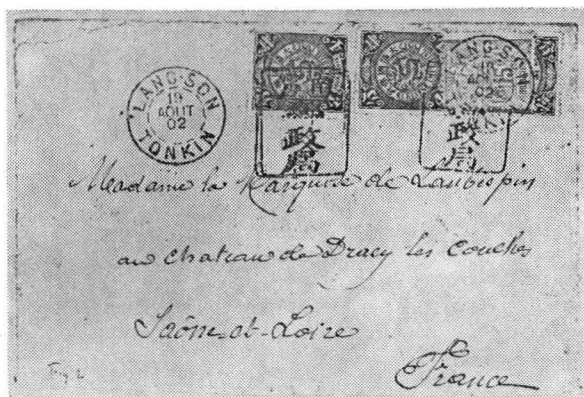 LANG-SON
19
AOUT
02
TONKIN
LANG-SON
19
AOUT
02
政局
政局
Madame la Marquise de Laubespin
au chateau de Dracy les Couches
Saône-et-Loire
France